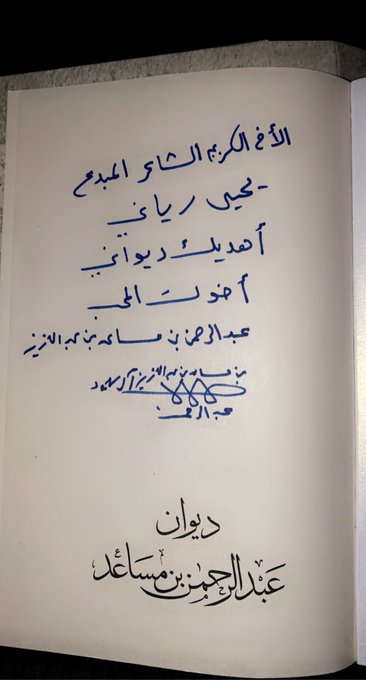 الأخ الكريم الشاعر المبدع
يحيى رياني
أهديك ديواني
أخوك المحب
عبدالرحمن بن مساعد بن عبدالعزيز
بن مساعد بن عبدالعزيز آل سعود
عبدالرحمن
ديوان
عبدالرحمن بن مساعد